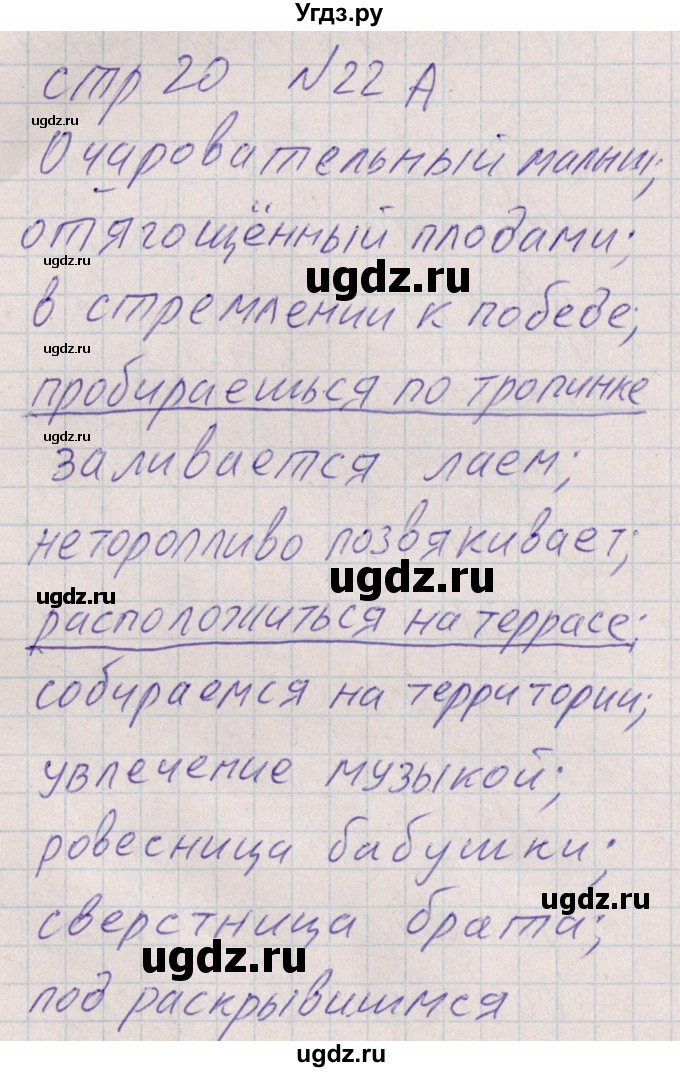 Угдз.ру
стр 20 №22 А
ugdz.ru
Очаровательный малыш;
отягощённый плодами;
ugdz.ru
ugdz.ru
в стремлении к победе;
ugdz.ru
пробираешься по тропинке
ugdz.ru
заливается лаем;
неторопливо позвякивает;
ugdz.ru
ugdz.ru
расположиться на террасе;
собираемся на территории;
увлечение музыкой;
ровесница бабушки;
ugdz.ru
сверстница брата;
ugdz.ru
под раскрывшимся
ugdz.ru